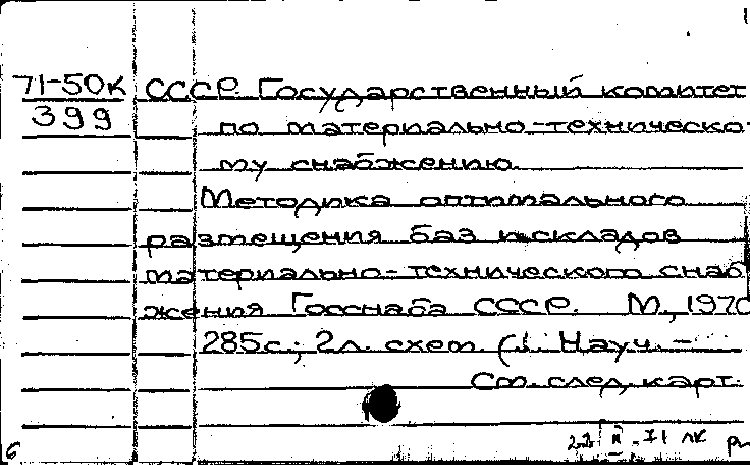 71-50к СССР. Государственный комитет
399 по материально-техническо-
му снабжению.
Методика оптимального
размещения баз и складов
материально-технического снаб
жения Госснаба СССР. М., 1970
285с.; 2л. схем. Науч. -
См. след. карт.
6